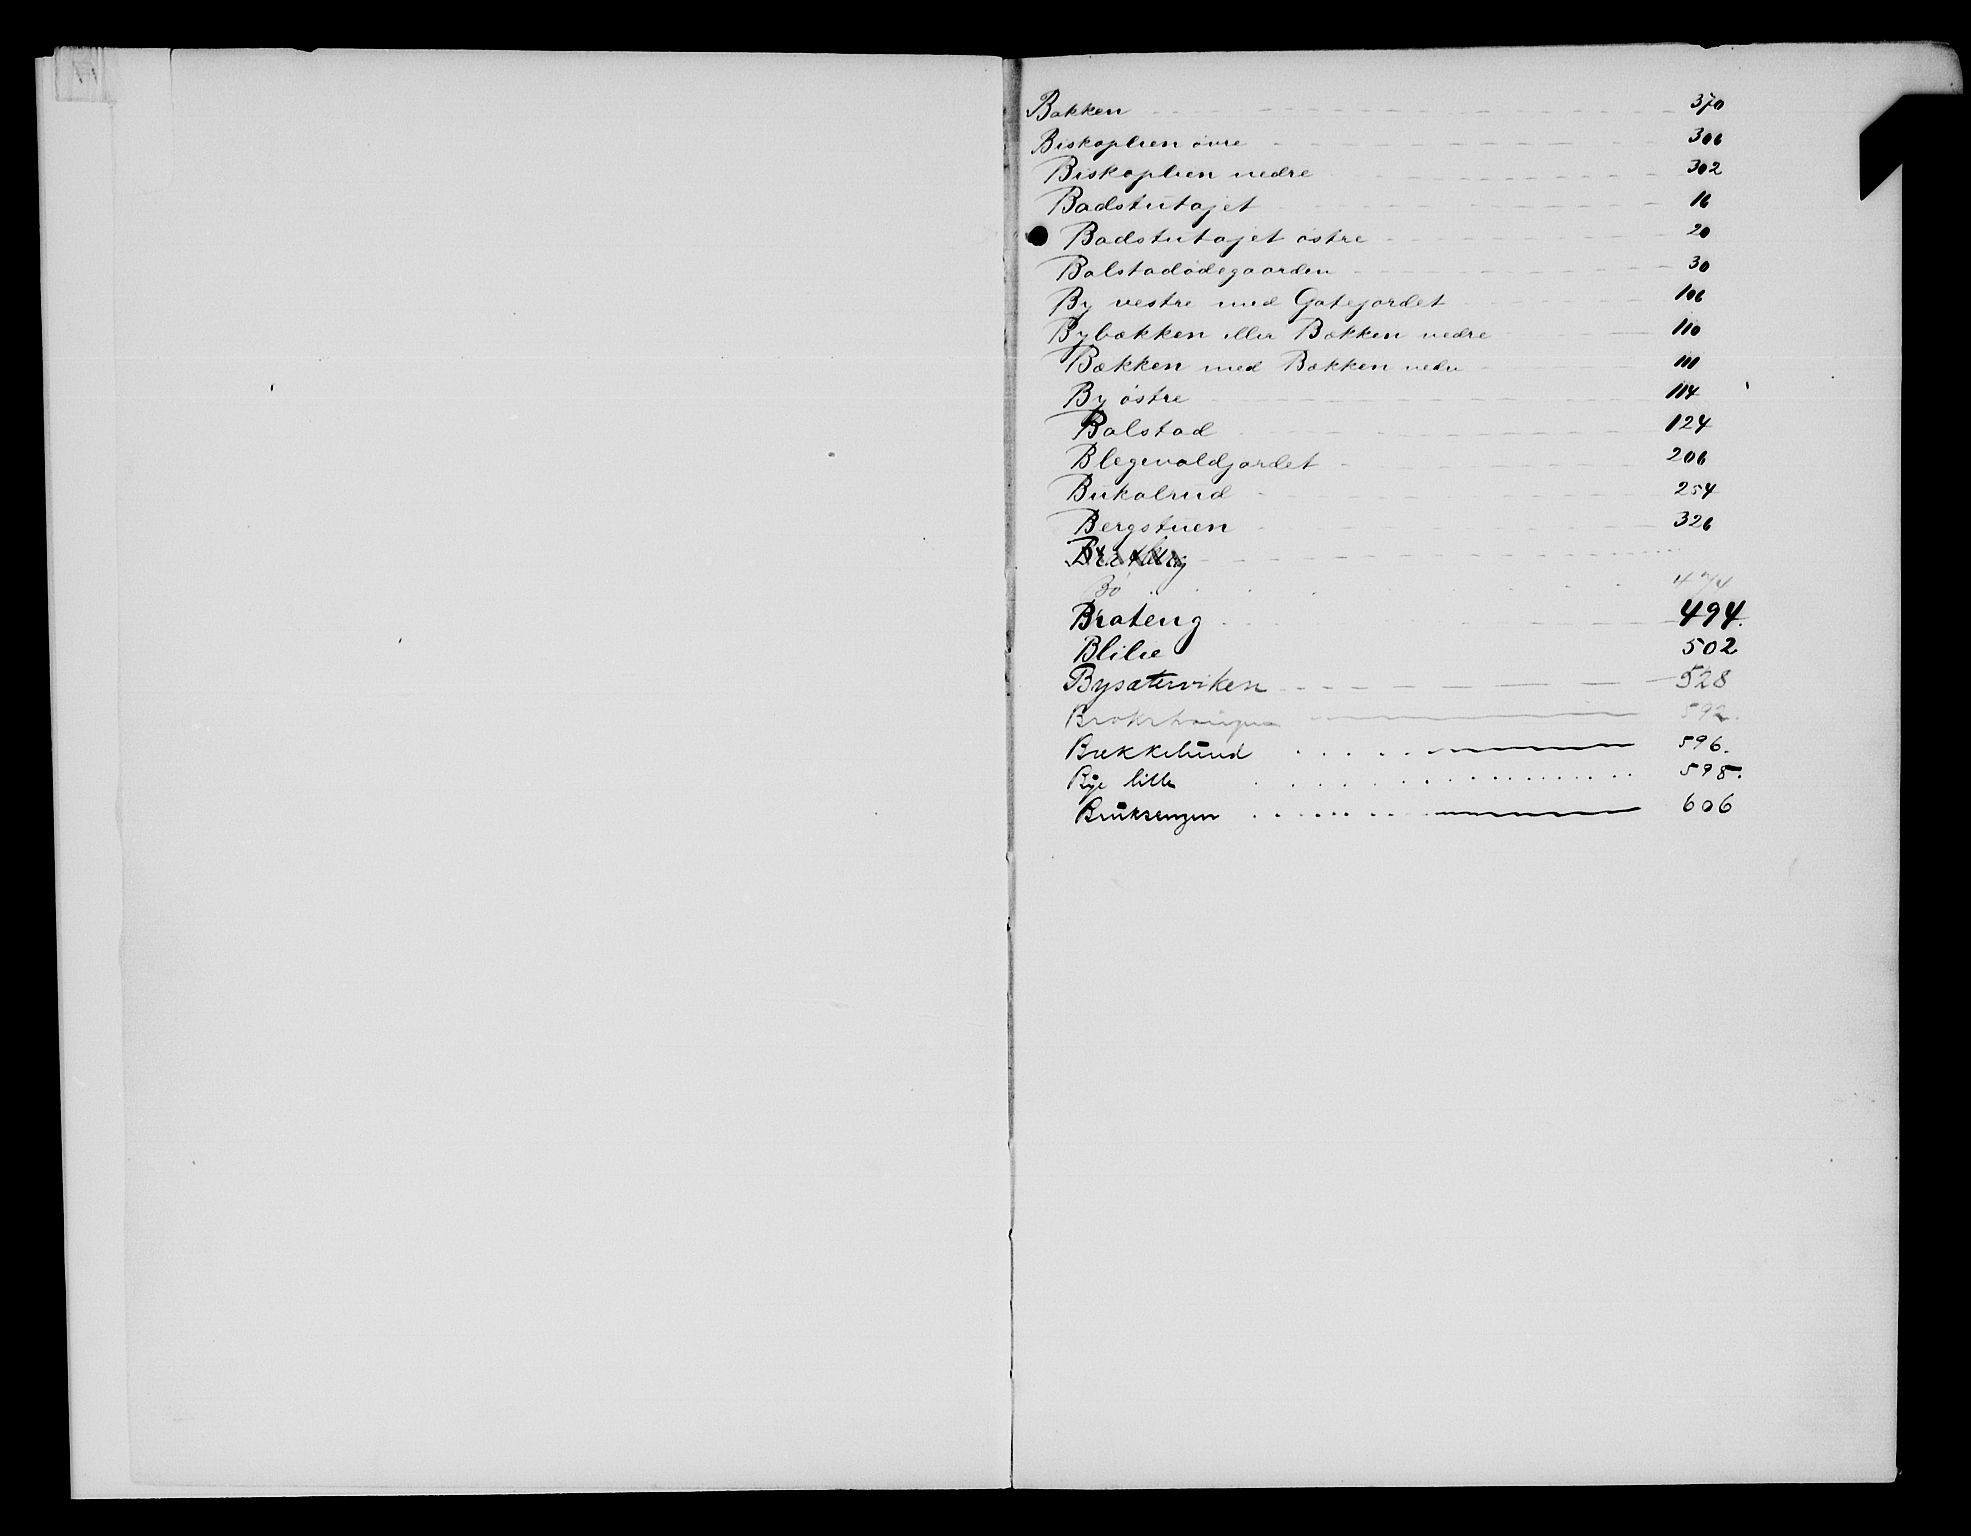 Bakken 370
Biskoplien övre 306
Biskoplien nedre 302
Badstutajet 16
Badstutajet östre 20
Balstadödegaarden 30
By vestre med Gatejordet 106
Bybækken eller Bækken nedre 110
Bækken med Bækken nedre 110
By östre 114
Balstad 124
Blegevoldjordet 206
Bukolrud 254
Bergstuen 326
Bö 474
Brateng 494.
Blilie 502
Bysæterviken 528
592.
Bækkelund 596.
Bye lille 598.
Bruksengen 606